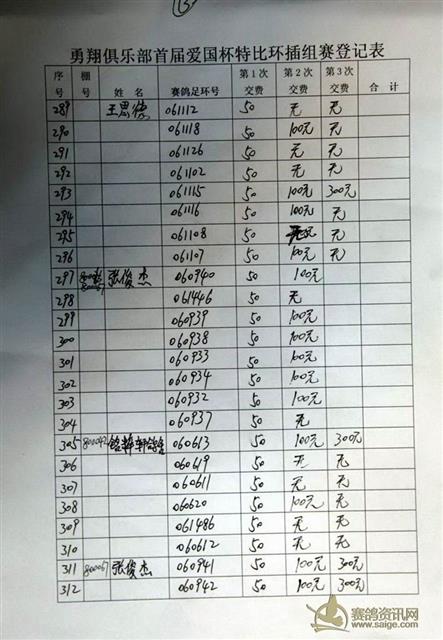 勇翔俱乐部首届爱国杯特比环插组赛登记表
序号 棚号 姓名 赛鸽足环号 第1次交费 第2次交费 第3次交费 合计
289 王思德 061112 50 无 无
290 061118 50 100元 无
291 061126 50 无 无
292 061102 50 无 无
293 061115 50 100元 300元
294 061116 50 100元 无
295 061108 50 无
296 061107 50 100元 无
297 张俊杰 060940 50 100元
298 061446 50 无
299 060939 50 100元
300 060938 50 100元
301 060933 50 100元
302 060934 50 100元
303 060932 50 100元
304 060937 50 无
305 800042 060613 50 100元 300元
306 060619 50 无 无
307 060611 50 无 无
308 060620 50 100元 无
309 061486 50 无 无
310 060612 50 无 无
311 800067 张俊杰 060941 50 100元 300元
312 060942 50 100元 300元
赛鸽资讯网
www.saige.com